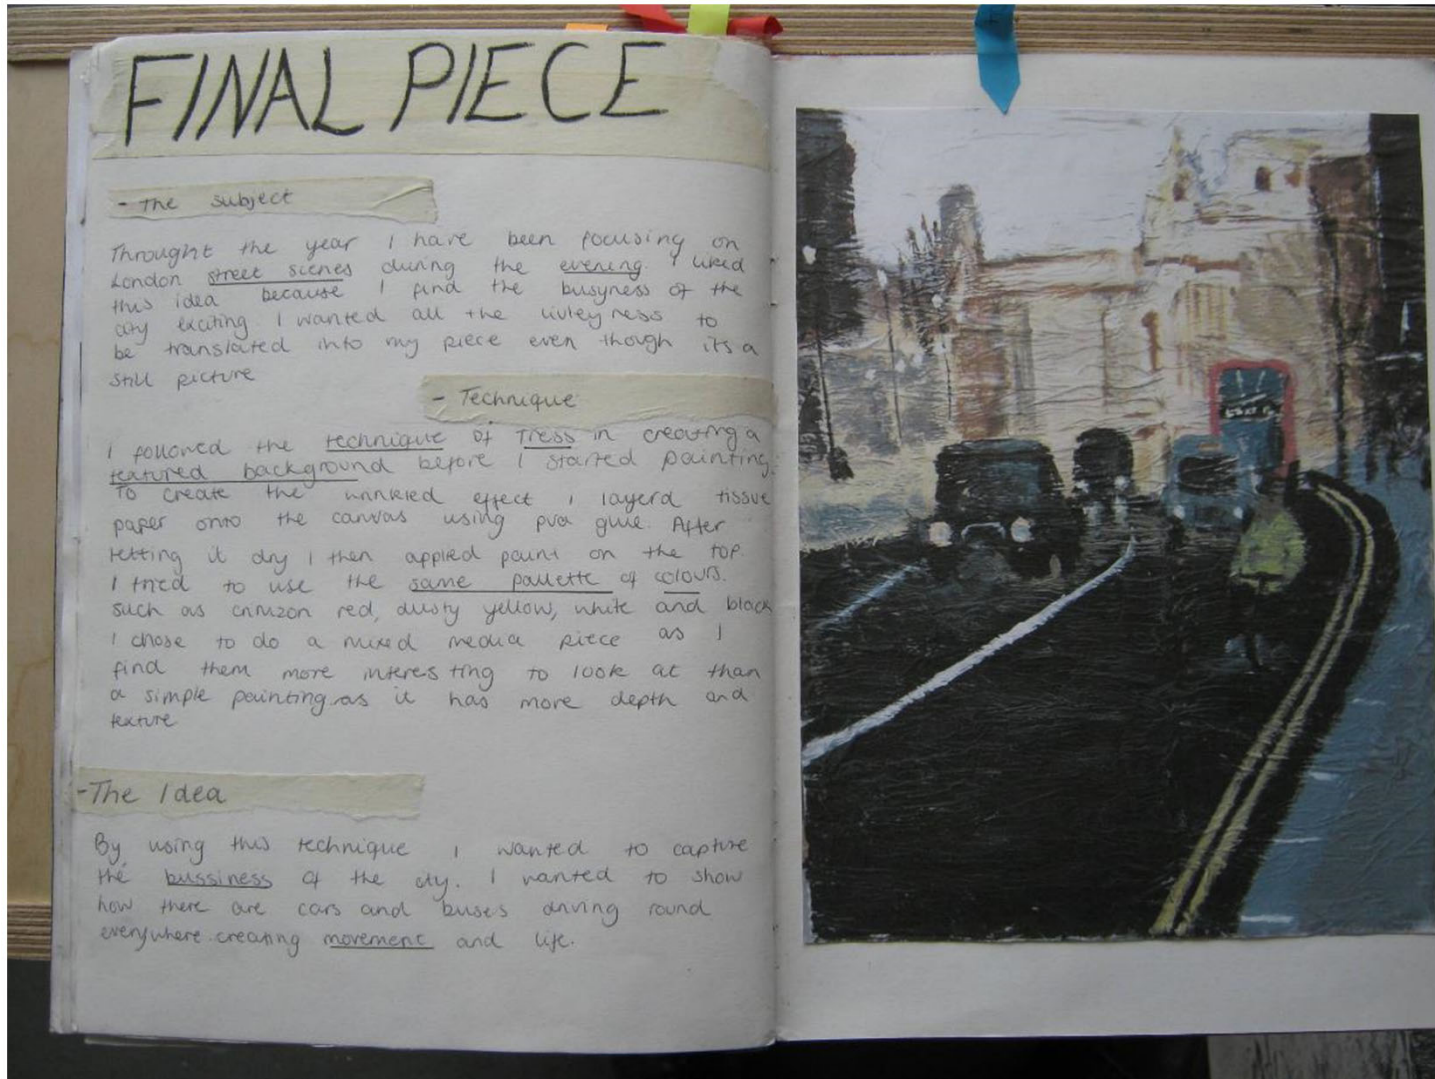 FINAL PIECE
- The subject
Throught the year I have been focusing on
London street scenes during the evening. I liked
this idea because I find the busyness of the
city exciting. I wanted all the livleyness to
be translated into my piece even though its a
still picture
- Technique
I followed the technique of Tress in creating a
textured background before I started painting.
To create the wrinkled effect I layerd tissue
paper onto the canvas using pva glue. After
letting it dry I then applied paint on the top.
I tried to use the same pallette of colours.
such as crimzon red, dusty yellow, white and black
I chose to do a mixed media piece as I
find them more interesting to look at than
a simple painting as it has more depth and
texture
- The Idea
By using this technique I wanted to capture
the bussiness of the city. I wanted to show
how there are cars and buses driving round
everywhere creating movement and life.